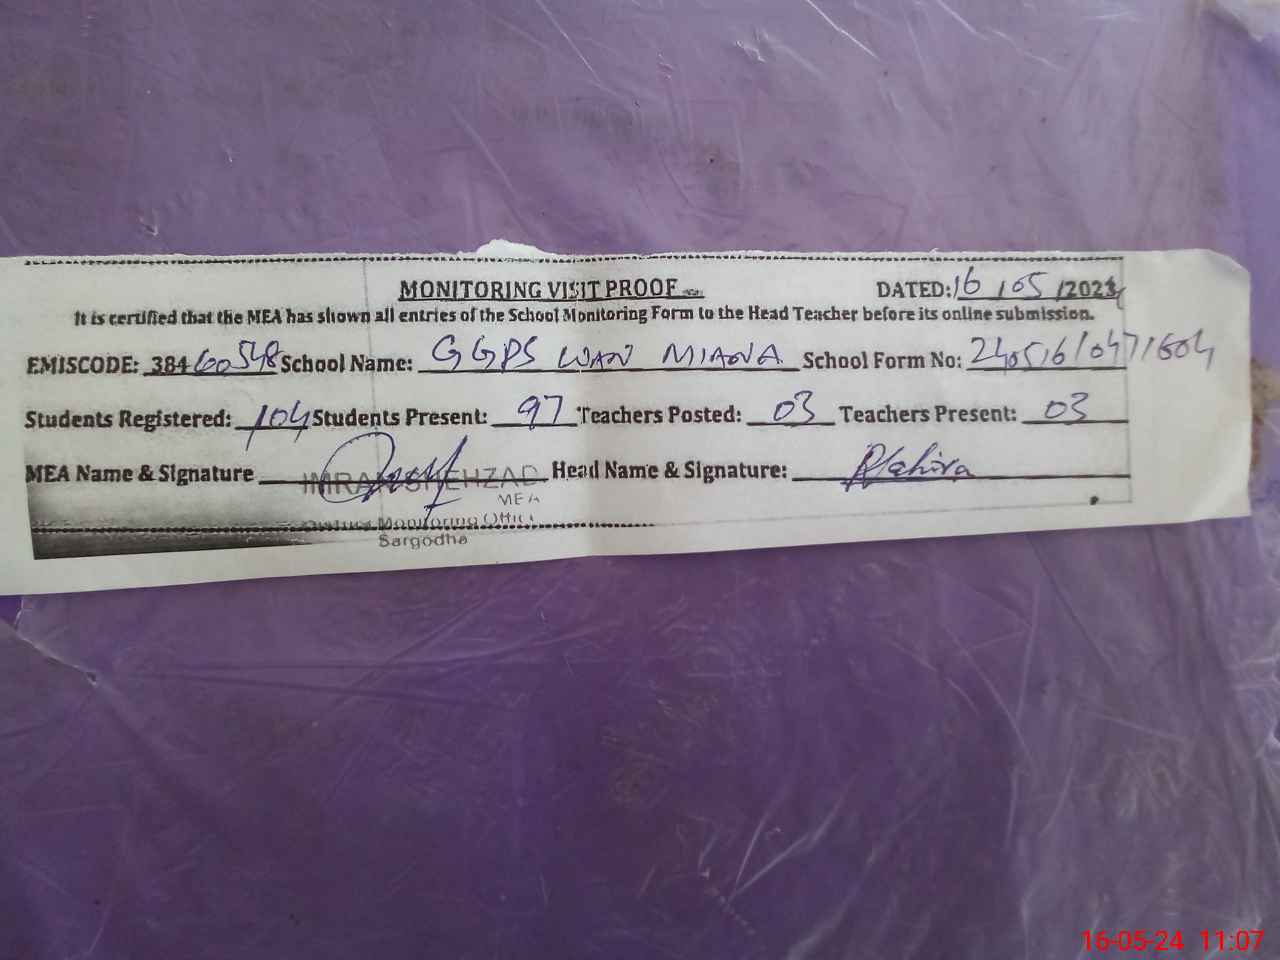 MONITORING VISIT PROOF DATED: 16/05/2024
It is certified that the MEA has shown all entries of the School Monitoring Form to the Head Teacher before its online submission.
EMISCODE: 38460548 School Name: GGPS WAN MIANA School Form No:
Students Registered: 104 Students Present: 97 Teachers Posted: 03 Teachers Present: 03
MEA Name & Signature IMRAN SHEHZAD Head Name & Signature:
MEA
District Monitoring Office
Sargodha
16-05-24 11:07